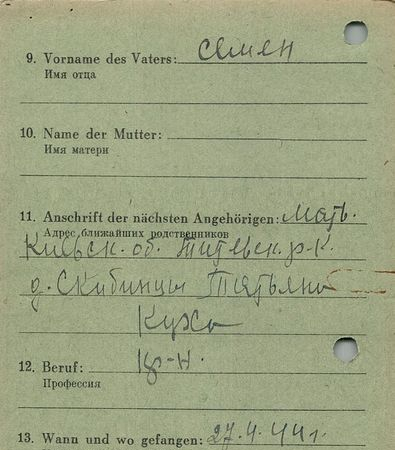 9. Vorname des Vaters: Семен
Имя отца
10. Name der Mutter:
Имя матери
11. Anschrift der nächsten Angehörigen: Мать.
Адрес ближайших родственников
Киевск. об. р-к.
д. Скибинцы Татьяна
Куха
12. Beruf: кр-н.
Профессия
13. Wann und wo gefangen: 27.4.44г.